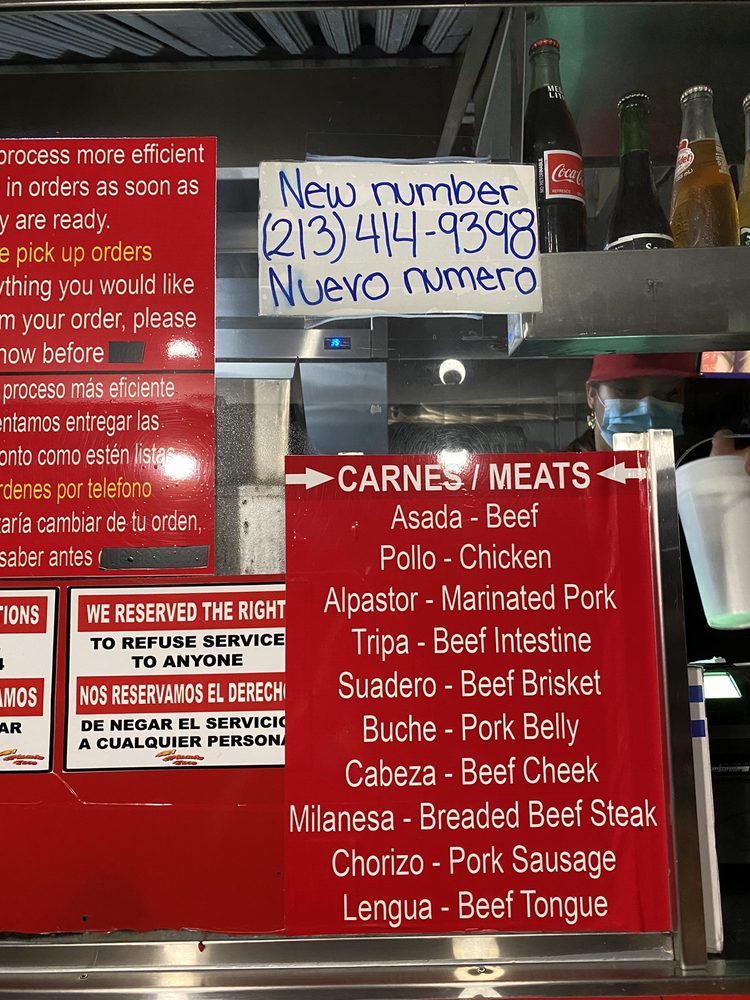 process more efficient
in orders as soon as
y are ready.
e pick up orders
ything you would like
m your order, please
now before
proceso más eficiente
entamos entregar las
onto como estén listas
rdenes por telefono
aría cambiar de tu orden,
saber antes
New number
(213) 414-9398
Nuevo numero
Coca-Cola
CARNES / MEATS
Asada - Beef
Pollo - Chicken
Alpastor - Marinated Pork
Tripa - Beef Intestine
Suadero - Beef Brisket
Buche - Pork Belly
Cabeza - Beef Cheek
Milanesa - Breaded Beef Steak
Chorizo - Pork Sausage
Lengua - Beef Tongue
IONS
4
AMOS
AR
WE RESERVED THE RIGHT
TO REFUSE SERVICE
TO ANYONE
NOS RESERVAMOS EL DERECH
DE NEGAR EL SERVICIO
A CUALQUIER PERSONA